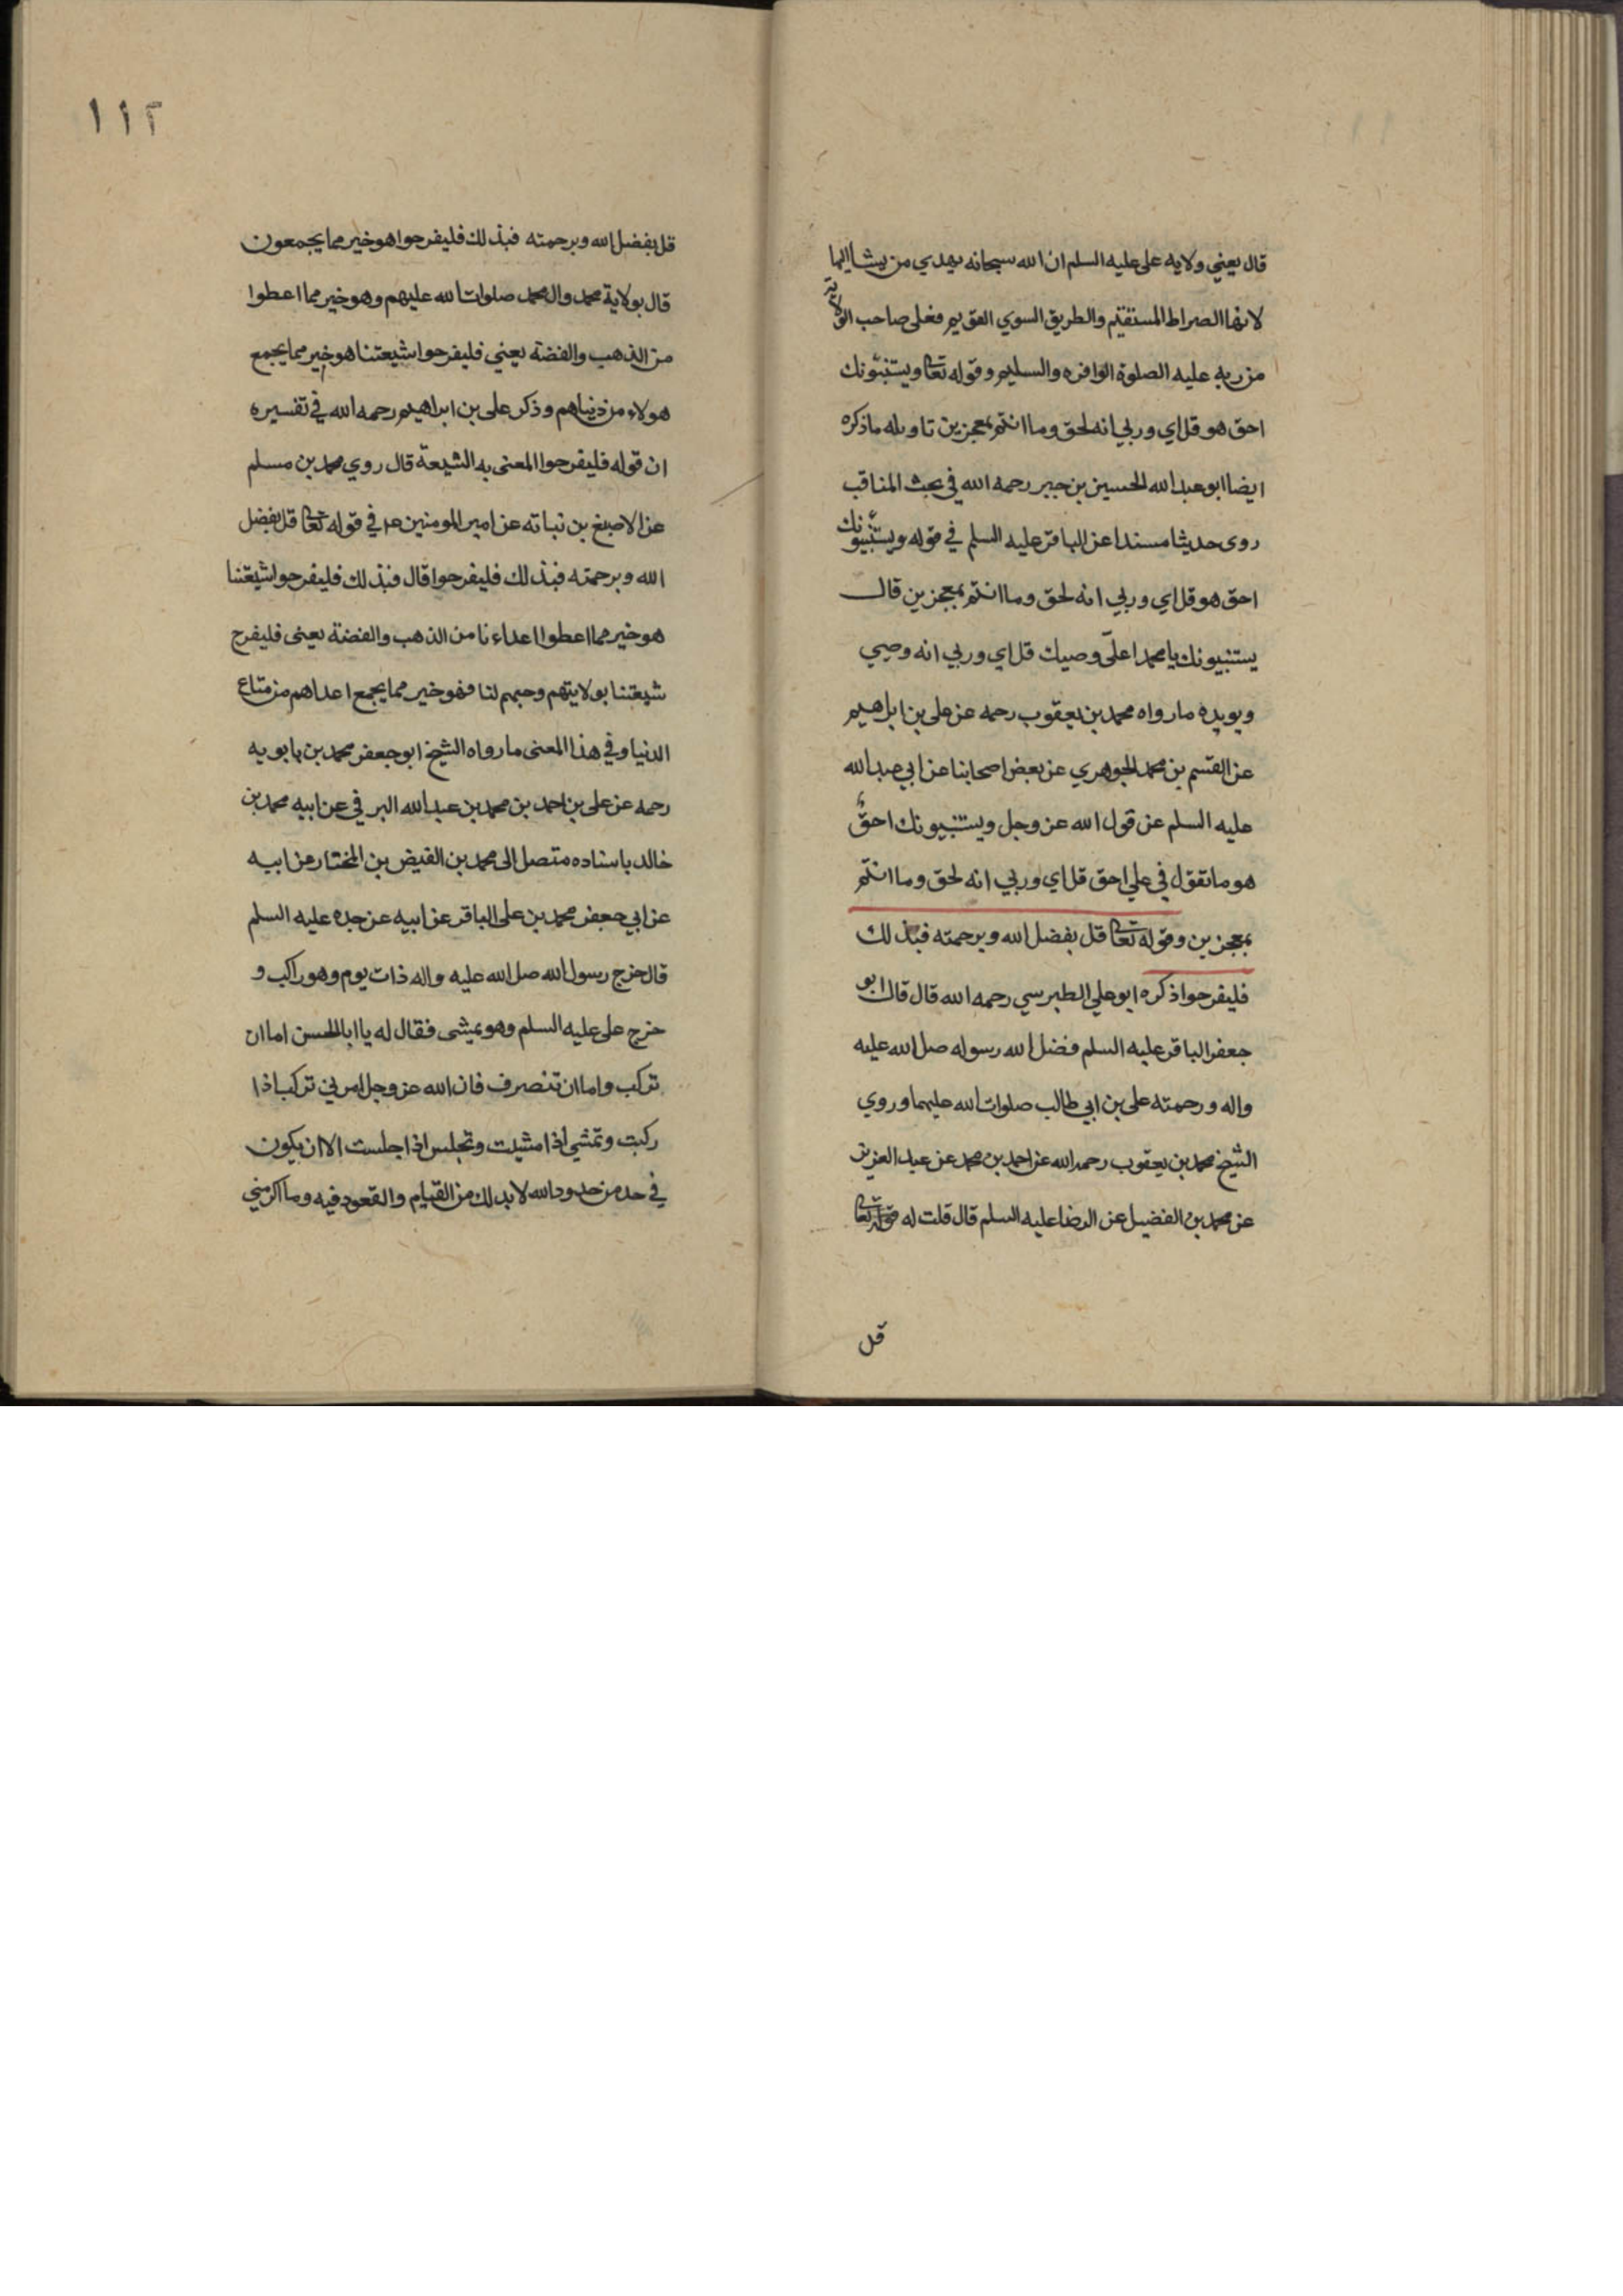 قال يعني ولايه على عليه السلم ان الله سبحانه يهدي من يشا اليها
لانها الصراط المستقيم والطريق السوي القويم فعلى صاحب الولاية
من ربه عليه الصلوة الوافره والسليم وقوله تعا ويستنبؤنك
احق هو قل اي وربي انه لحق وما انتم بمعجزين تاويله ما ذكره
ايضا ابو عبد الله الحسين بن جبر رحمه الله في بحث المناقب
روى حديثا مسندا عن الباقر عليه السلم في قوله ويستنبئونك
احق هو قل اي وربي انه لحق وما انتم بمعجزين قال
يستنبيونك يا محمد اعلىّ وصيك قل اي وربي انه وصيي
ويويده ما رواه محمد بن يعقوب رحمه عن على بن ابراهيم
عن القسم بن محمد الجوهري عن بعض اصحابنا عن ابي عبد الله
عليه السلم عن قول الله عز وجل ويستنبيونك احقٌّ
هو ما تقول في علي احق قل اي وربي انه لحق وما انتم
بمعجزين وقوله تعا قل بفضل الله وبرحمته فبذلك
فليفرحوا ذكره ابو علي الطبرسي رحمه الله قال قال ابو
جعفر الباقر عليه السلم فضل الله رسوله صل الله عليه
واله ورحمته على بن ابي طالب صلوات الله عليهما وروي
الشيخ محمد بن يعقوب رحمه الله عن احمد بن محمد عن عبد العزيز
عن محمد بن الفضيل عن الرضا عليه السلم قال قلت له قوله تعا
قل
١١٢
قل بفضل الله وبرحمته فبذلك فليفرحوا هو خير مما يجمعون
قال بولاية محمد وال محمد صلوات الله عليهم وهو خير مما اعطوا
من الذهب والفضة يعني فليفرحوا شيعتنا هو خير مما يجمع
هولاء من دنياهم وذكر على بن ابراهيم رحمه الله في تفسيره
ان قوله فليفرحوا المعنى به الشيعة قال روي محمد بن مسلم
عن الاصبغ بن نباته عن امير المومنين عم في قوله تعا قل بفضل
الله وبرحمته فبذلك فليفرحوا قال فبذلك فليفرحوا شيعتنا
هو خير مما اعطوا اعداءنا من الذهب والفضة يعنى فليفرح
شيعتنا بولايتهم وحبهم لنا فهو خير مما يجمع اعداهم من متاع
الدنيا وفي هذا المعنى ما رواه الشيخ ابو جعفر محمد بن بابويه
رحمه عن على بن احمد بن محمد بن عبد الله البرقي عن ابيه محمد بن
خالد باسناده متصل الى محمد بن الفيض بن المختار عن ابيه
عن ابي جعفر محمد بن على الباقر عن ابيه عن جده عليه السلم
قال خرج رسول الله صل الله عليه واله ذات يوم وهو راكب و
خرج على عليه السلم وهو يمشى فقال له يا ابا الحسن اما ان
تركب واما ان تنصرف فان الله عز وجل امرني تركب اذا
ركبت وتمشي اذا مشيت وتجلس اذا جلست الا ان يكون
في حد من حدود الله لا بد لك من القيام والقعود فيه وما اكرمني